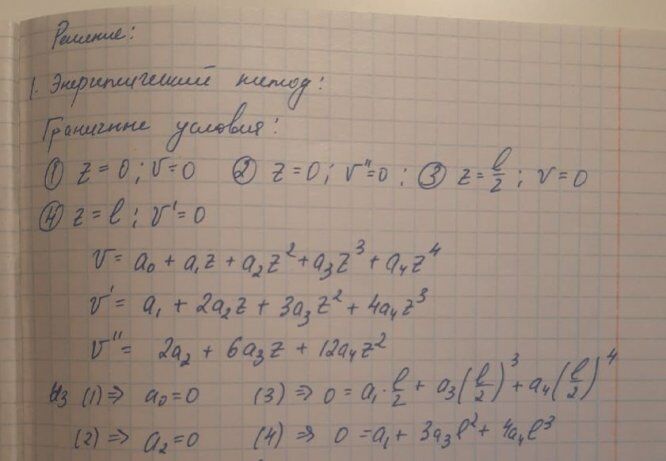 Решение:
1. Энергетический метод:
Граничные условия:
① z = 0 ; v = 0 ② z = 0 ; v'' = 0 ; ③ z = l/2 ; v = 0
④ z = l ; v' = 0
v = a₀ + a₁z + a₂z² + a₃z³ + a₄z⁴
v' = a₁ + 2a₂z + 3a₃z² + 4a₄z³
v'' = 2a₂ + 6a₃z + 12a₄z²
Из (1) ⇒ a₀ = 0 (3) ⇒ 0 = a₁ · l/2 + a₃(l/2)³ + a₄(l/2)⁴
(2) ⇒ a₂ = 0 (4) ⇒ 0 = a₁ + 3a₃l² + 4a₄l³